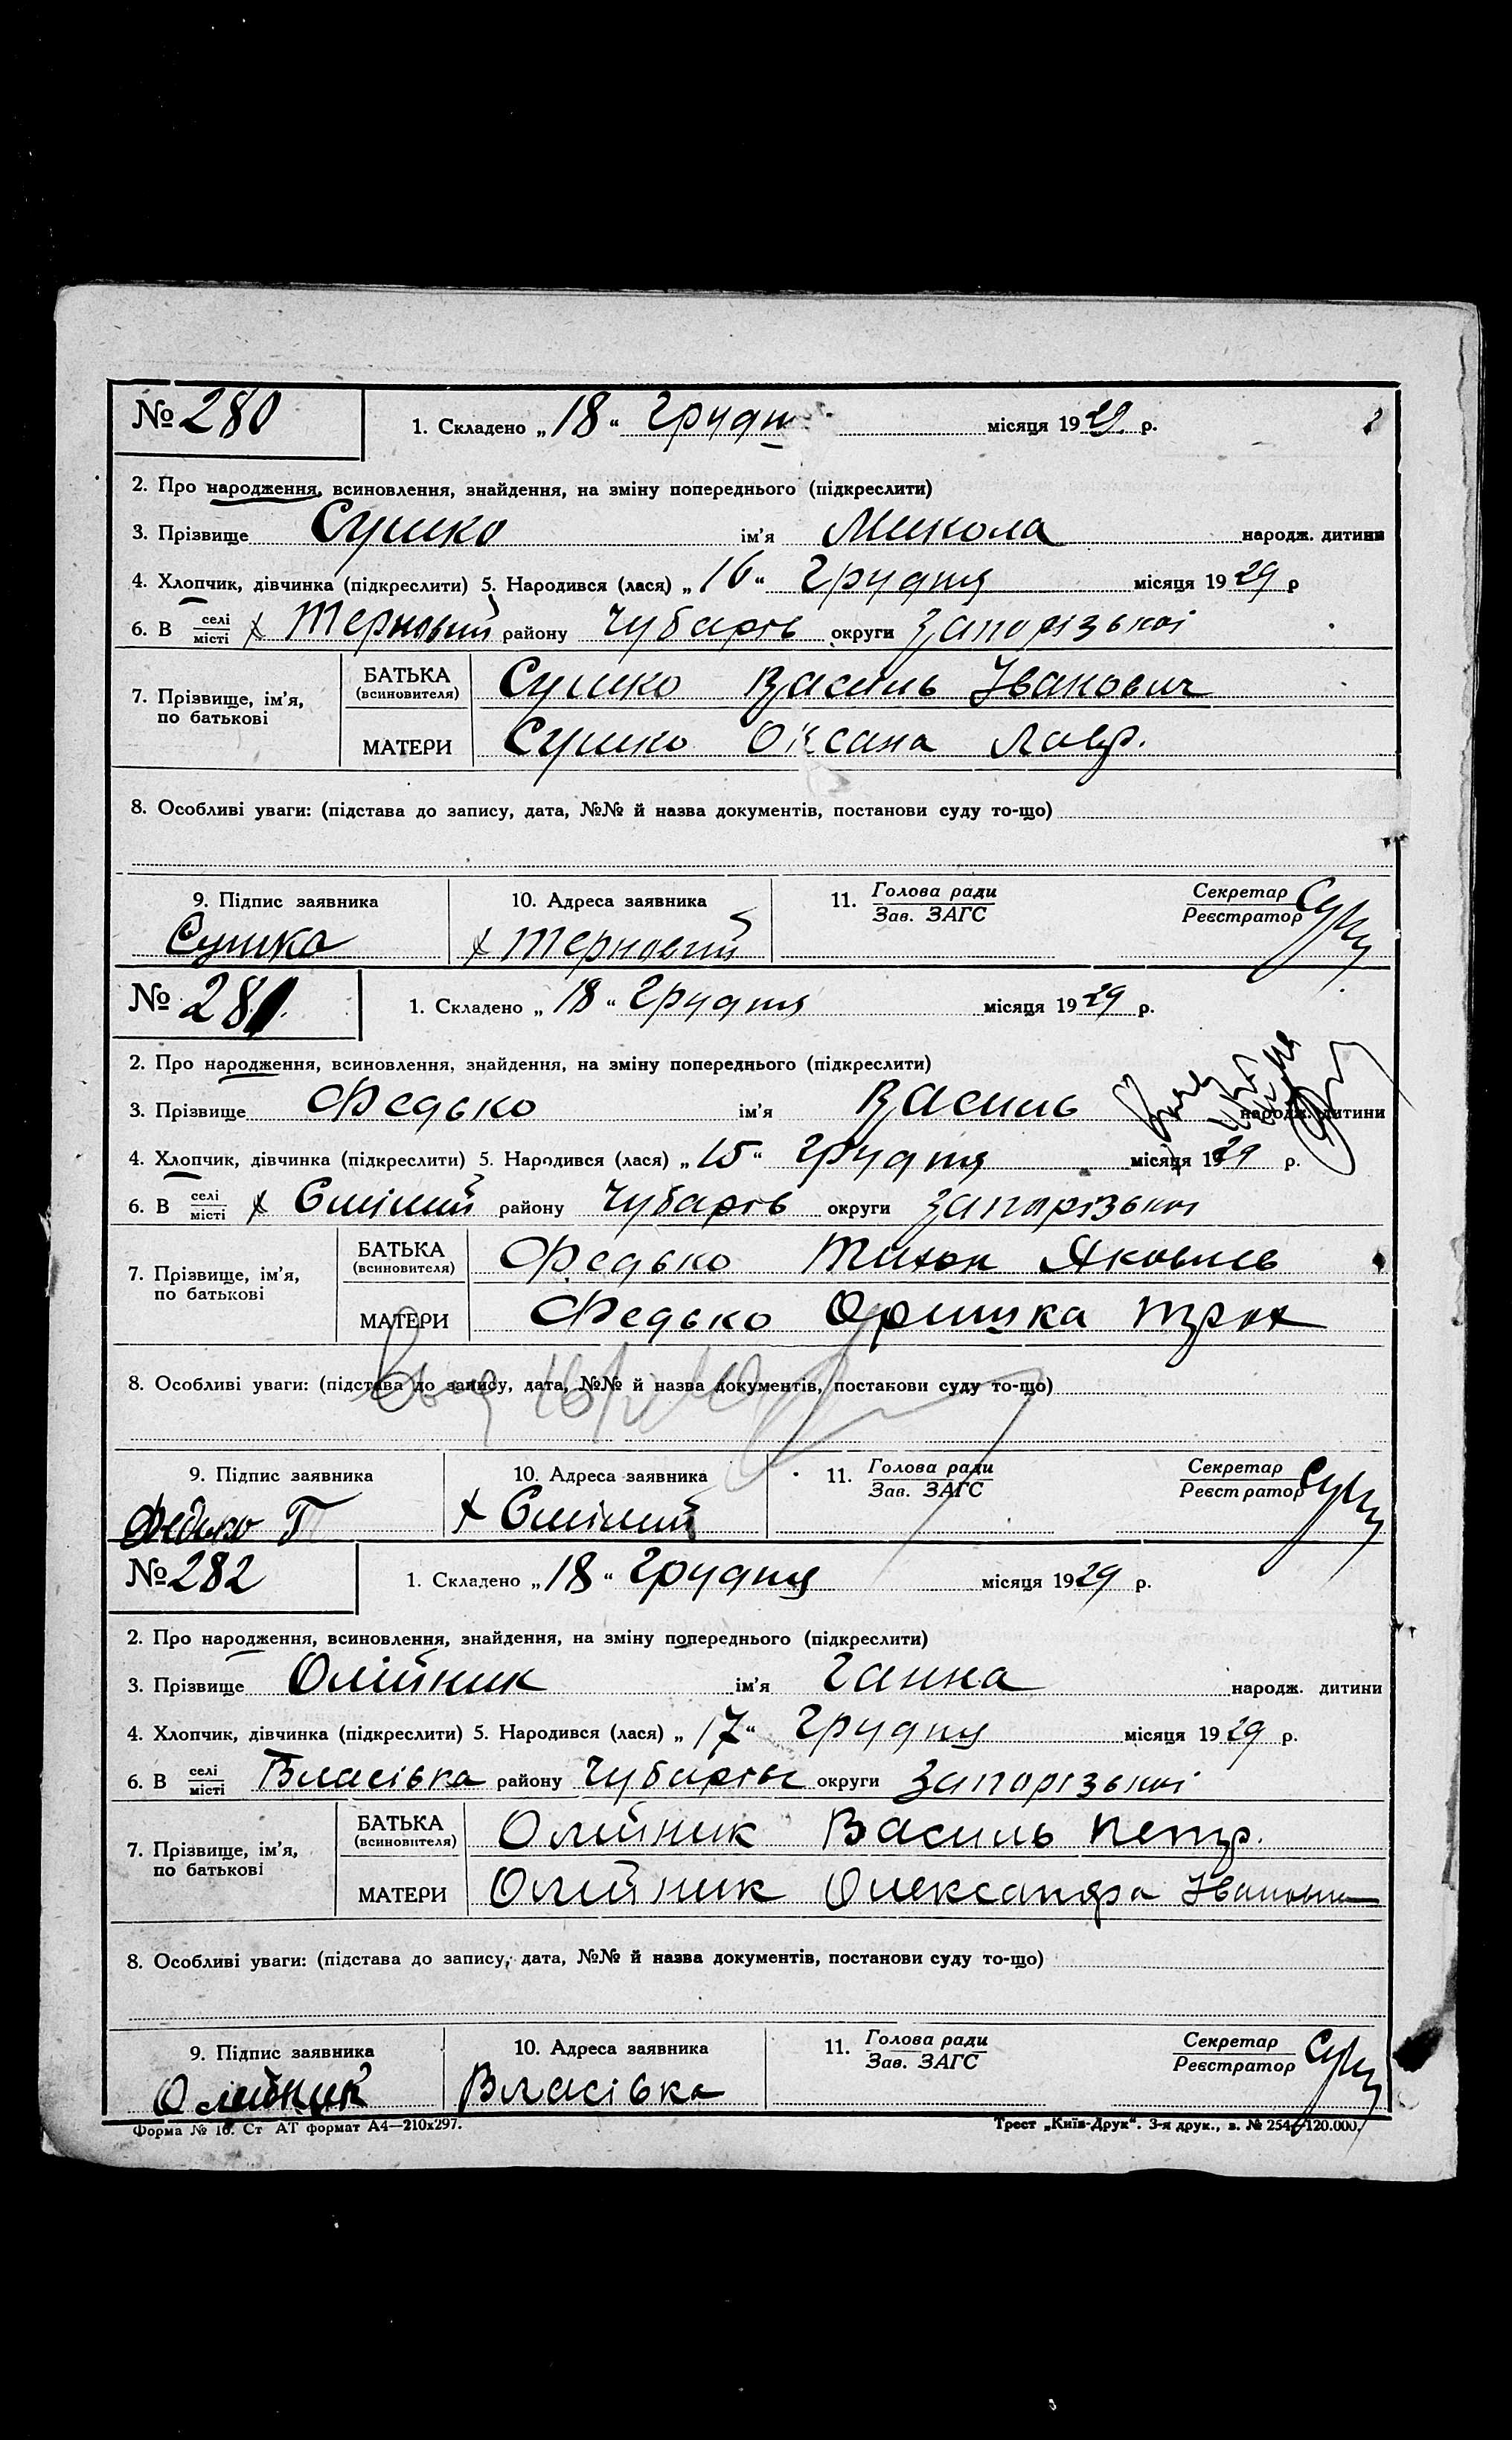 № 280 1. Складено „18“ Грудн місяця 1929 р.
2. Про народження, всиновлення, знайдення, на зміну попереднього (підкреслити)
3. Прізвище Сушко ім’я Микола народж. дитини
4. Хлопчик, дівчинка (підкреслити) 5. Народився (лася) „16“ Грудня місяця 1929 р
6. В селі/місті х Терновий району Чубарів округи Запорізької
7. Прізвище, ім’я, по батькові
БАТЬКА (всиновителя) Сушко Василь Іванович
МАТЕРИ Сушко Оксана Лавр.
8. Особливі уваги: (підстава до запису, дата, №№ й назва документів, постанови суду то-що)
9. Підпис заявника 10. Адреса заявника 11. Голова ради/Зав. ЗАГС Секретар/Реєстратор
Сушко х Терновий
№ 281. 1. Складено „18“ Грудня місяця 1929 р.
2. Про народження, всиновлення, знайдення, на зміну попереднього (підкреслити)
3. Прізвище Федько ім’я Василь народж. дитини
4. Хлопчик, дівчинка (підкреслити) 5. Народився (лася) „15“ Грудня місяця 1929 р.
6. В селі/місті х району Чубарів округи Запорізької
7. Прізвище, ім’я, по батькові
БАТЬКА (всиновителя) Федько Тихон Яковлев
МАТЕРИ Федько Оришка
8. Особливі уваги: (підстава до запису, дата, №№ й назва документів, постанови суду то-що)
9. Підпис заявника 10. Адреса заявника 11. Голова ради/Зав. ЗАГС Секретар/Реєстратор
Федько Т х
№ 282 1. Складено „18“ Грудня місяця 1929 р.
2. Про народження, всиновлення, знайдення, на зміну попереднього (підкреслити)
3. Прізвище Олійник ім’я Ганна народж. дитини
4. Хлопчик, дівчинка (підкреслити) 5. Народився (лася) „17“ Грудня місяця 1929 р.
6. В селі/місті Власівка району Чубарівс округи Запорізької
7. Прізвище, ім’я, по батькові
БАТЬКА (всиновителя) Олійник Василь Петр.
МАТЕРИ Олійник Олександра Івановна
8. Особливі уваги: (підстава до запису, дата, №№ й назва документів, постанови суду то-що)
9. Підпис заявника 10. Адреса заявника 11. Голова ради/Зав. ЗАГС Секретар/Реєстратор
Олейник Власівка
Форма № 16. Ст АТ формат А4—210х297. Трест „Київ-Друк“. 3-я друк., з. № 2546—120.000.